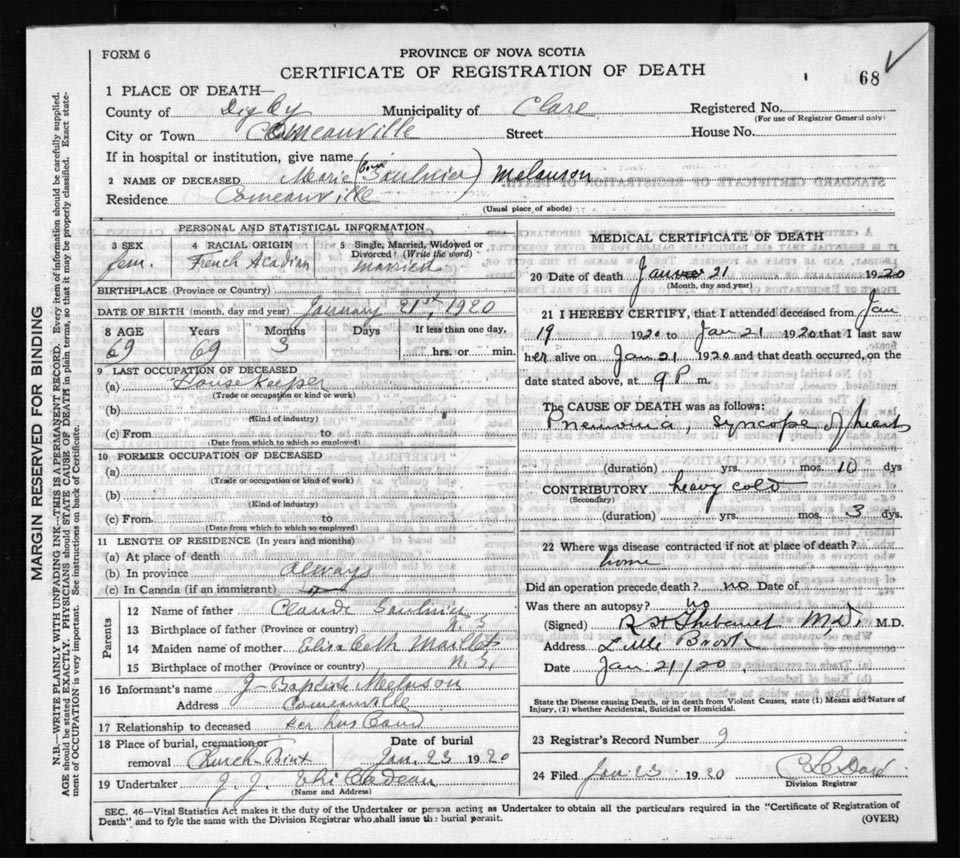 FORM 6
PROVINCE OF NOVA SCOTIA
CERTIFICATE OF REGISTRATION OF DEATH
68
1 PLACE OF DEATH—
County of Digby Municipality of Clare Registered No.
(For use of Registrar General only)
City or Town Comeauville Street House No.
If in hospital or institution, give name
2 NAME OF DECEASED Marie (born Saulnier) Melanson
Residence Comeauville
(Usual place of abode)
PERSONAL AND STATISTICAL INFORMATION
3 SEX 4 RACIAL ORIGIN 5 Single, Married, Widowed or Divorced (Write the word)
fem. French Acadian married
BIRTHPLACE (Province or Country)
DATE OF BIRTH (month, day and year) January 21st, 1920
8 AGE Years Months Days If less than one day,
69 69 3 hrs. or min.
9 LAST OCCUPATION OF DECEASED
(a) Housekeeper
(Trade or occupation or kind or work)
(b)
(Kind of industry)
(c) From to
(Date from which to which so employed)
10 FORMER OCCUPATION OF DECEASED
(a)
(Trade or occupation or kind of work)
(b)
(Kind of industry)
(c) From to
(Date from which to which so employed)
11 LENGTH OF RESIDENCE (In years and months)
(a) At place of death
(b) In province always
(c) In Canada (if an immigrant)
Parents
12 Name of father Claude Saulnier
13 Birthplace of father (Province or country) N.S.
14 Maiden name of mother Elisabeth Maillet
15 Birthplace of mother (Province or country) N.S.
16 Informant's name J-Baptiste Melanson
Address Comeauville
17 Relationship to deceased her husband
18 Place of burial, cremation or removal Church-Point
Date of burial Jan. 23 1920
19 Undertaker J. J.
(Name and Address)
MEDICAL CERTIFICATE OF DEATH
20 Date of death 21 1920
(Month, day and year)
21 I HEREBY CERTIFY, that I attended deceased from Jan
19 1920 to Jan 21 1920 that I last saw
her alive on Jan 21 1920 and that death occurred, on the
date stated above, at 9 P m.
The CAUSE OF DEATH was as follows:
syncope of heart
(duration) yrs. mos. 10 dys
CONTRIBUTORY heavy cold
(Secondary)
(duration) yrs. mos. 3 dys.
22 Where was disease contracted if not at place of death?
home
Did an operation precede death? no Date of
Was there an autopsy? no
(Signed) Thibault M.D. M.D.
Address Little Brook
Date Jan 21/20
State the Disease causing Death, or in death from Violent Causes, state (1) Means and Nature of Injury, (2) whether Accidental, Suicidal or Homicidal.
23 Registrar's Record Number 9
24 Filed Jan 23 1920
Division Registrar
SEC. 46—Vital Statistics Act makes it the duty of the Undertaker or person acting as Undertaker to obtain all the particulars required in the "Certificate of Registration of
Death" and to fyle the same with the Division Registrar who shall issue the burial permit.
(OVER)
MARGIN RESERVED FOR BINDING
N.B.—WRITE PLAINLY WITH UNFADING INK—THIS IS A PERMANENT RECORD. Every item of information should be carefully supplied.
AGE should be stated EXACTLY. PHYSICIANS should STATE CAUSE OF DEATH in plain terms, so that it may be properly classified. Exact statement of OCCUPATION is very important. See instructions on back of Certificate.